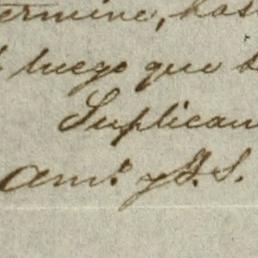 ermine, has
luego que s
Suplican
Am.o y S. S.